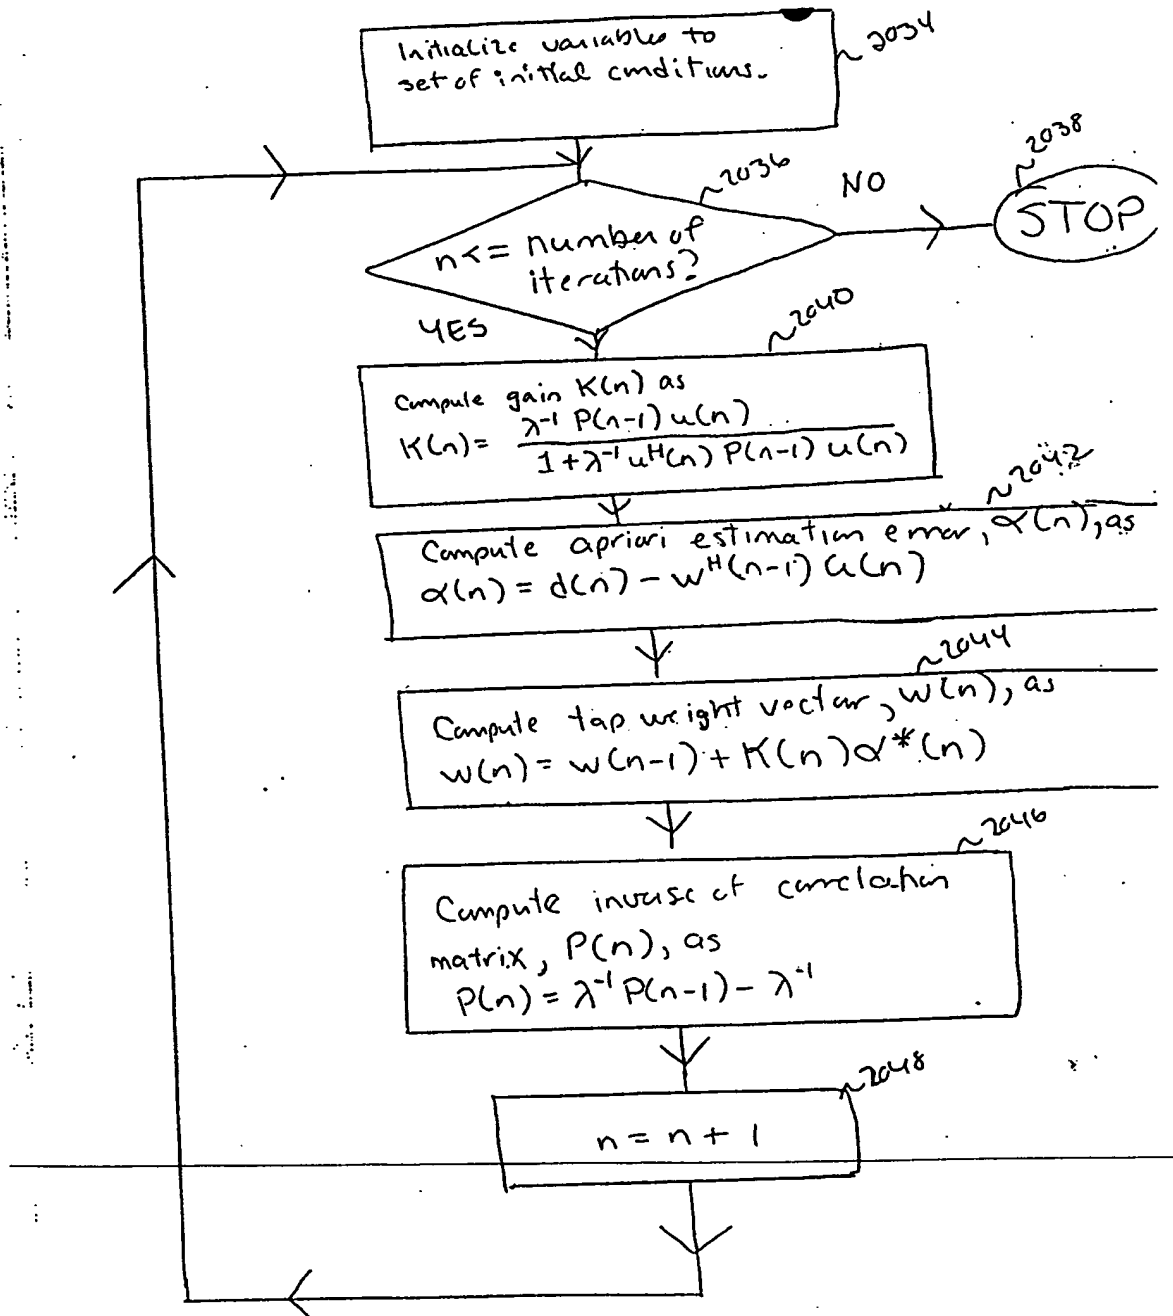 Initialize variables to
set of initial conditions.
~2034
~2036
NO
~2038
STOP
n<= number of
iterations?
YES
~2040
Compute gain K(n) as
K(n)= λ⁻¹ P(n-1) u(n)
1+λ⁻¹ uᴴ(n) P(n-1) u(n)
~2042
Compute apriori estimation error, α(n), as
α(n) = d(n) - wᴴ(n-1) u(n)
~2044
Compute tap weight vector, w(n), as
w(n) = w(n-1) + K(n)α*(n)
~2046
Compute inverse of correlation
matrix, P(n), as
P(n) = λ⁻¹ P(n-1) - λ⁻¹
~2048
n = n + 1